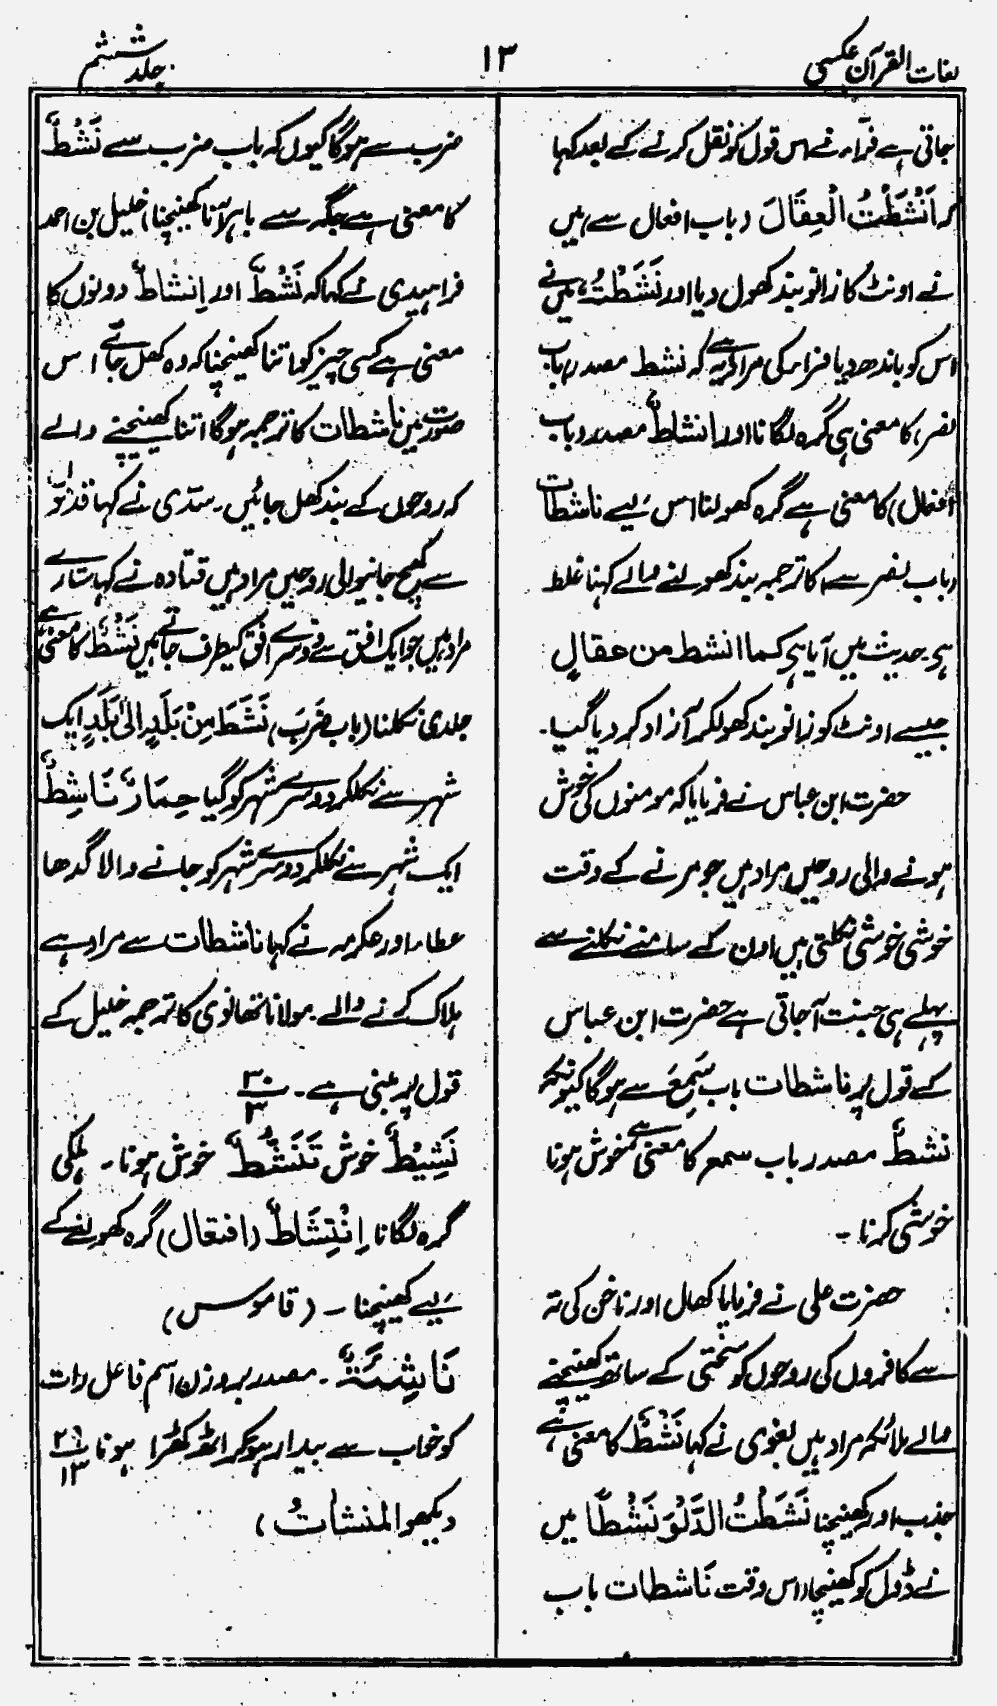 لغات القرآن عکسی
۱۳
جلد ششم
جاتی ہے فرّاء نے اس قول کو نقل کرنے کے بعد کہا
کہ اَنْشَطْتُ الْعِقَالَ (باب افعال سے) میں
نے اونٹ کا زانو بند کھول دیا اور نَشَطْتُہٗ میں نے
اس کو باندھ دیا فراء کی مراد یہ ہے کہ نشط مصدر (باب
نصر) کا معنی ہی گرہ لگانا اور اِنشاطٌ مصدر (باب
افعال) کا معنی ہے گرہ کھولنا اس لیے ناشطات
(باب نصر سے) کا ترجمہ بند کھولنے والے کہنا غلط
ہے حدیث میں آیا ہی کما انشط من عقالٍ
جیسے اونٹ کو زانو بند کھولکر آزاد کر دیا گیا۔
حضرت ابن عباس نے فرمایا کہ مومنوں کی خوش
ہونے والی روحیں مراد ہیں جو مرنے کے وقت
خوشی خوشی نکلتی ہیں اون کے سامنے نکلنے سے
پہلے ہی جنت آ جاتی ہے حضرت ابن عباس
کے قول پر ناشطات باب سَمِعَ سے ہوگا کیونکہ
نشطٌ مصدر باب سمع کا معنی ہے خوش ہونا
خوشی کرنا۔
حضرت علی نے فرمایا کھال اور ناخن کی تہ
سے کافروں کی روحوں کو سختی کے ساتھ کھینچنے
والے ملائکہ مراد ہیں بغوی نے کہا نَشْطٌ کا معنی ہے
جذب اور کھینچنا نَشَطْتُ الدَّلْوَ نَشْطًا میں
نے ڈول کو کھینچا، اس وقت نَاشطات باب
ضرب سے ہوگا کیوں کہ باب ضرب سے نَشْطٌ
کا معنی ہے جگہ سے باہر لانا کھینچنا، خلیل بن احمد
فراہیدی نے کہا کہ نَشْطٌ اور اِنشاطٌ دونوں کا
معنی ہے کسی چیز کو اتنا کھینچنا کہ وہ کھل جائے اس
صورت میں ناشطات کا ترجمہ ہوگا اتنا کھینچنے والے
کہ روحوں کے بند کھل جائیں۔ سدی نے کہا قدموں
سے کھنچ جانیوالی روحیں مراد ہیں قتادہ نے کہا ستارے
مراد ہیں جو ایک افق سے دوسرے افق کیطرف جاتے ہیں نَشْطٌ کا معنی ہے
جلدی نکلنا (باب ضَرَبَ) نَشَطَ مِنْ بَلَدٍ اِلیٰ بَلَدٍ ایک
شہر سے نکلکر دوسرے شہر کو گیا حِمَارٌ نَاشِطٌ
ایک شہر سے نکلکر دوسرے شہر کو جانے والا گدھا
عطاء اور عکرمہ نے کہا ناشطات سے مراد ہے
ہلاک کرنے والے۔ مولانا تھانوی کا ترجمہ خلیل کے
قول پر مبنی ہے۔ ۳۰/۳
نَشِیْطٌ خوش تَنَشُّطٌ خوش ہونا۔ ہلکی
گرہ لگانا اِنْتِشَاطٌ (افتعال) گرہ کھولنے کے
لیے کھینچنا۔ (قاموس)
نَاشِئَۃٌ۔ مصدر بروزن اسم فاعل رات
کو خواب سے بیدار ہوکر اٹھ کھڑا ہونا ۲۹/۱۳
دیکھو المنشاٰتُ)